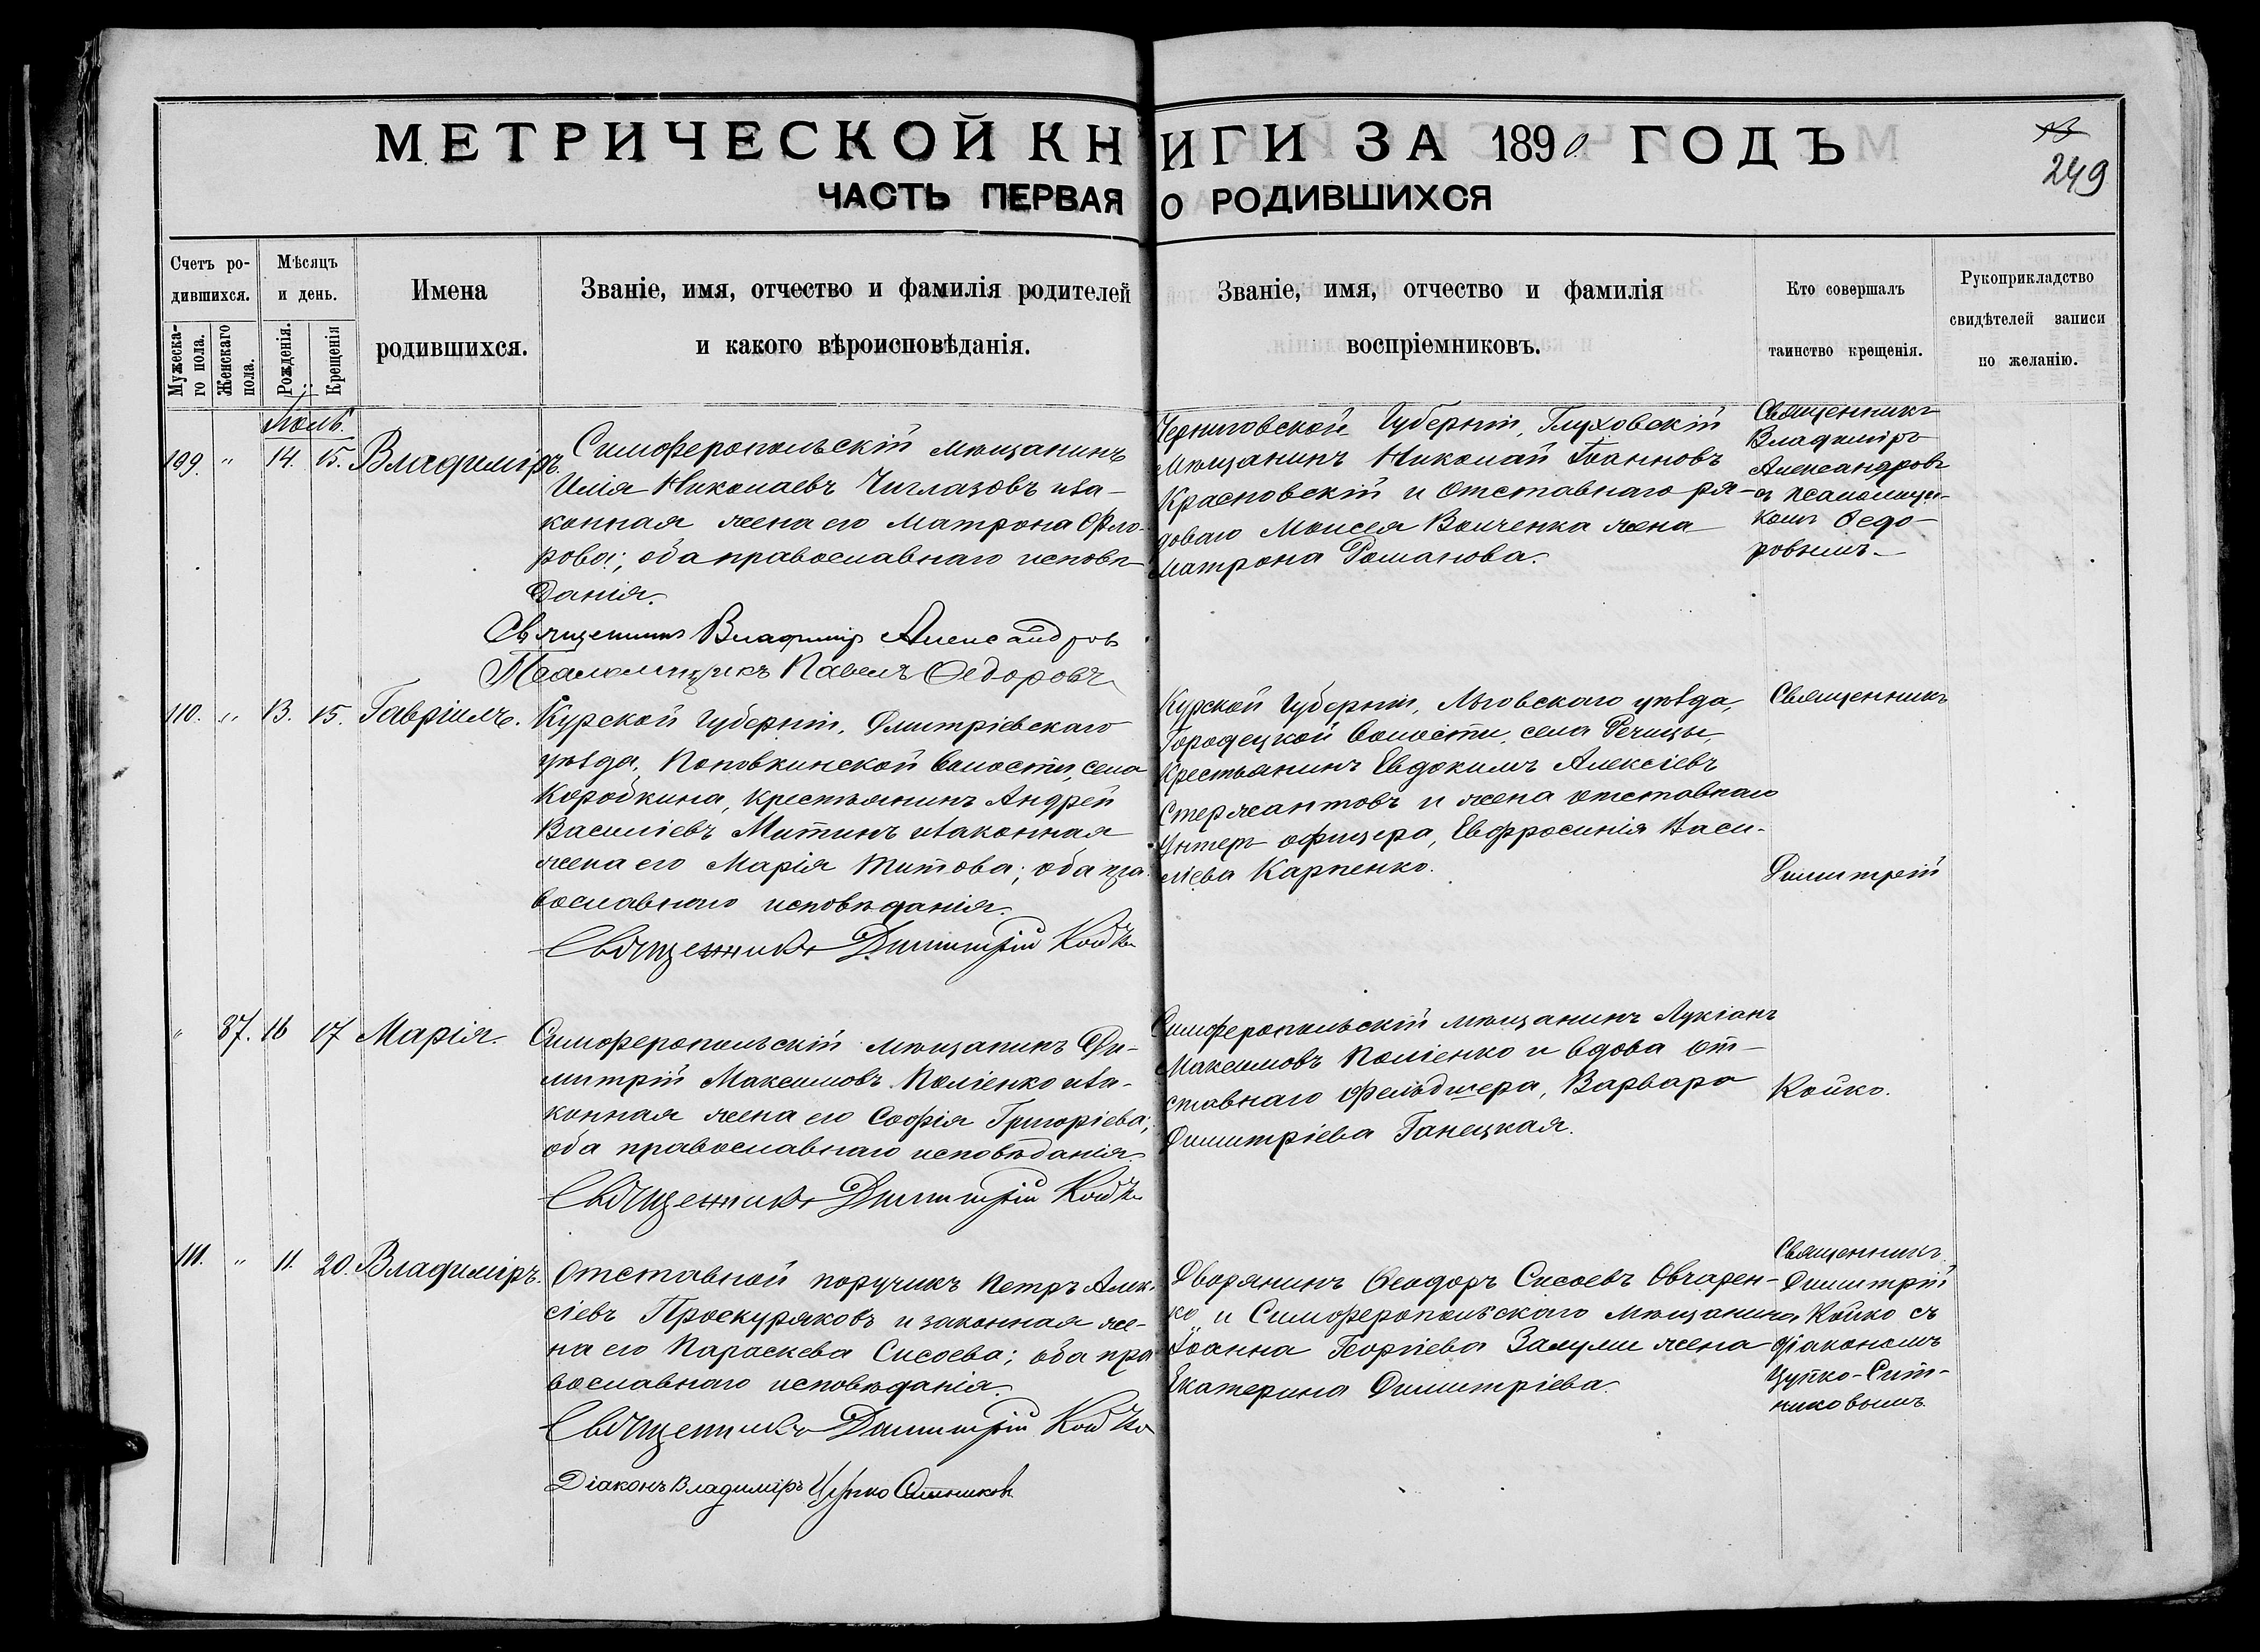 МЕТРИЧЕСКОЙ КНИГИ ЗА 1890 ГОДЪ
ЧАСТЬ ПЕРВАЯ О РОДИВШИХСЯ
249
Счетъ ро-
дившихся.
Мужеска-
го пола.
Женскаго
пола.
Мѣсяцъ
и день.
Рожденія.
Крещенія
Имена
родившихся.
Званіе, имя, отчество и фамилія родителей
и какого вѣроисповѣданія.
Званіе, имя, отчество и фамилія
воспріемниковъ.
Кто совершалъ
таинство крещенія.
Рукоприкладство
свидѣтелей записи
по желанію.
Іюль.
109. " 14. 15. Владиміръ.
Симферопольскій мѣщанинъ
Илія Николаевъ Чиглазовъ и за-
конная жена его Матрона Фло-
рова; оба православнаго исповѣ-
данія.
Священникъ Владиміръ Александровъ
Псаломщикъ Павелъ Ѳедоровъ
Черниговской Губерніи, Глуховскій
мѣщанинъ Николай Іоанновъ
Красновскій и отставнаго ря-
доваго Моисея Волченка жена
Матрона Романова.
Священникъ
Владиміръ
Александровъ
съ псаломщи-
комъ Ѳедо-
ровымъ
110. " 13. 15. Гавріилъ.
Курской Губерніи, Дмитріевскаго
уѣзда, Поповкинской волости, села
Коробкина, крестьянинъ Андрей
Василіевъ Митинъ и законная
жена его Марія Титова; оба пра-
вославнаго исповѣданія.
Священникъ Димитрій Койко
Курской Губерніи, Льговскаго уѣзда,
Городецкой волости, села Речицы,
крестьянинъ Евдокимъ Алексіевъ
Стержантовъ и жена отставнаго
унтеръ офицера, Евфросинія Васи-
ліева Карпенко.
Священникъ
Димитрій
" 87. 16 17 Марія.
Симферопольскій мѣщанинъ Ди-
митрій Максимовъ Поліенко и за-
конная жена его Софія Григоріева;
оба православнаго исповѣданія.
Священникъ Димитрій Койко
Симферопольскій мѣщанинъ Лукіанъ
Максимовъ Поліенко и вдова от-
ставнаго фельдшера, Варвара
Димитріева Ганецкая.
Койко.
111. " 11. 20. Владиміръ.
Отставной поручикъ Петръ Алек-
сіевъ Проскуряковъ и законная же-
на его Параскева Сисоева; оба пра-
вославнаго исповѣданія.
Священникъ Димитрій Койко
Діаконъ Владиміръ Цупко Ситниковъ
Дворянинъ Ѳеодоръ Сисоевъ Овчарен-
ко и Симферопольскаго мѣщанина
Іоанна Георгіева Залули жена
Екатерина Димитріева.
Священникъ
Димитрій
Койко съ
діакономъ
Цупко-Сит-
никовымъ